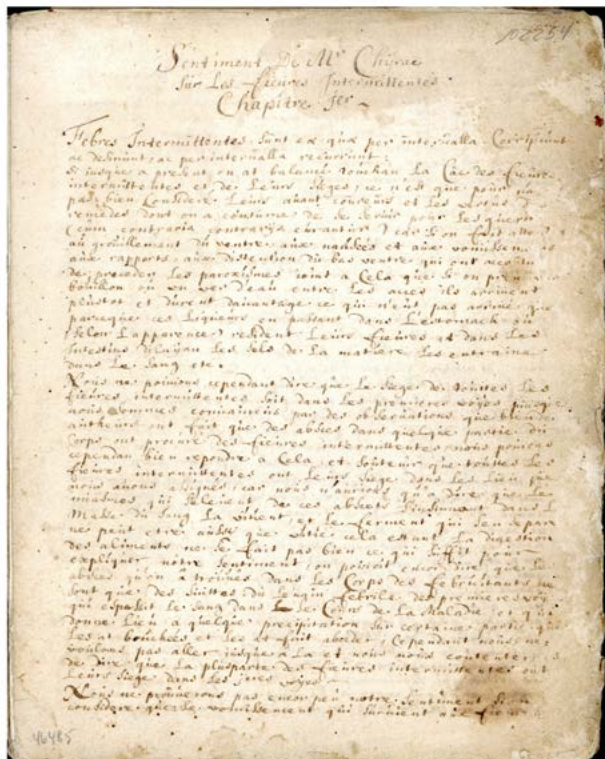 102254
Sentiment De Mr Chirac
Sur Les fieures Intermittentes
Chapitre 1er
Febres Intermittentes sunt eæ quæ per interualla Corripiunt
ac desinunt, ac per interualla recurrunt.
Si iusque a present on at balancé touchan La Cãe des fieures
intermittentes et de Leurs sieges, ce n'est que pour
pas bien Considere Leurs auant coureurs et Les vertus
remedes dont on a coustume de se seruir pour Les guerir
(cum contraria contrarijs curantur) car si on fait
au grouillement du ventre, aux nausées et aux
aux rapports, aux distention du bas ventre qui ont
de preceder Les paroxismes joint a Cela que si on
bouillon ou un ver d'eau entre Les acces ils arriuent
plustot et durent dauantage ce qui n'eut pas arriué que
parceque ces Liqueurs en passant dans L'estomach ou
(selon L'apparence) resident Leurs fieures et dans Les
Intestins Les sels de La matiere Les entraine
dans Le sang etc.
Nous ne pouuons cependant dire que Le siege de toutes Les
fieures intermittentes soit dans Les premieres voyes puisque
nous sommes conuaincus par des obseruations que bien
autheurs ont fait que des abscés dans quelque partie du
Corps ont procuré des fieures intermittentes, nous pouuons
cependan bien repondre a Cela, et soutenir que touttes Les
fieures intermittentes ont Leurs siege dans Les Lieu que
nous auons assignés, car nous n'aurions qu'a dire que Les
miasmes qui s'eleuent de ces abscets s'insinuant dans
Masse du sang La vitient, et Le ferment qui s'en separe
ne peut etre aussi que vitié cela estant La digestion
des aliments ne se fait pas bien ce qui suffit pour
expliquer notre sentiment, on pouroit encor dire que Les
abscés qu'on a trouués dans Les Corps des febricitants ne
sont que des suittes du Leuain febrile des premieres voyes
qui epaissit Le sang dans Le Cours de La Maladie et qui
donne Lieu a quelque precipitation sur certaine partie
Les at bouchées et Les et fait absceder, Cependent nous ne
voulons pas aller jusque a La et nous nous contenterons
de dire que La plusparte des fieures intermittentes ont
Leurs siege dans Les 1eres voyes.
Nous ne prouuerons pas encor peu notre sentiment si on
considere que Le vomissement qui suruient aux fieures
46485